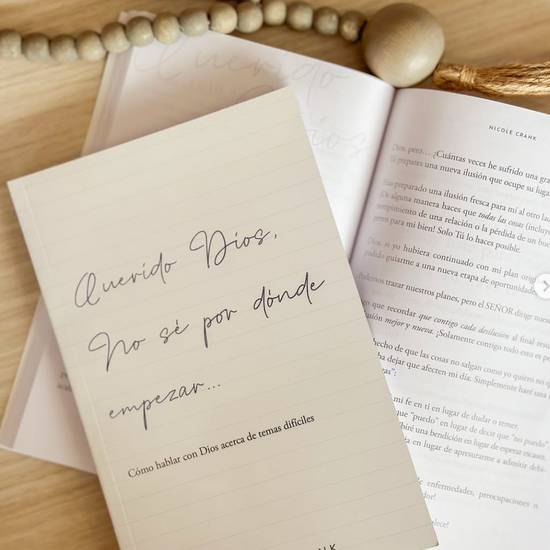 Querido Dios,
No sé por dónde
empezar...
Cómo hablar con Dios acerca de temas difíciles
Querido
Dios
NICOLE CRANK
Dios, pero... ¿Cuántas veces he sufrido una gra
Tú prepares una nueva ilusión que ocupe su luga
preparado una ilusión fresca para mí al otro lad
¿De alguna manera haces que todas las cosas (incluye
rompimiento de una relación o la pérdida de un bue
peren para mi bien! Solo Tú lo haces posible.
Dios, si yo hubiera continuado con mi plan origin
podido guiarme a una nueva etapa de oportunidad
Podemos trazar nuestros planes, pero el SEÑOR dirige nuest
go que recordar que contigo cada desilusión al final resu
usión mejor y nueva. ¡Solamente contigo todo esto es po
hecho de que las cosas no salgan como yo quiero no q
ba dejar que afecten mi día. Simplemente haré una l
ras":
mi fe en ti en lugar de dudar o temer.
que "puedo" en lugar de decir que "no puedo"
biré una bendición en lugar de esperar escasez.
da en lugar de apresurarme a admitir debi-
de enfermedades, preocupaciones o
dor!
lece!